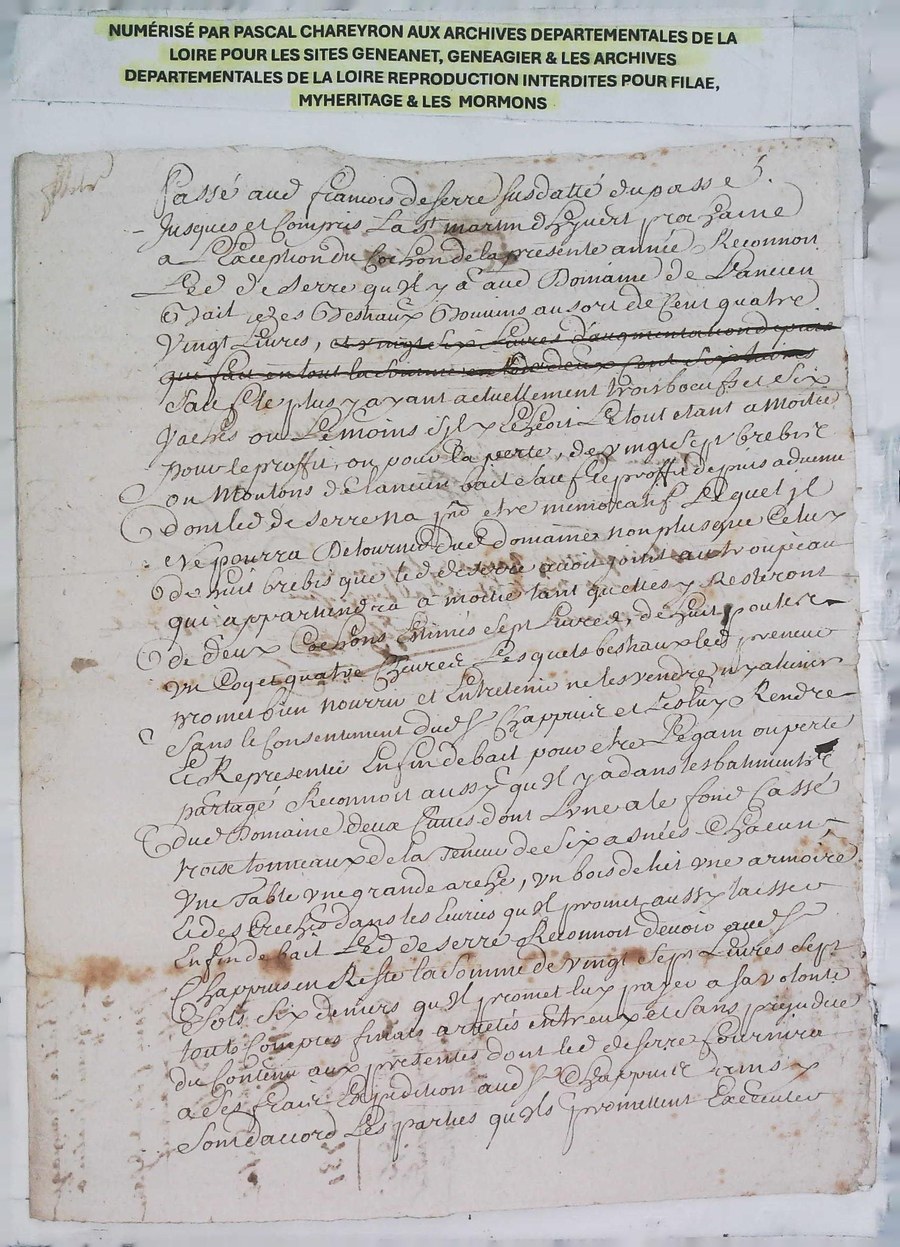 NUMÉRISÉ PAR PASCAL CHAREYRON AUX ARCHIVES DEPARTEMENTALES DE LA
LOIRE POUR LES SITES GENEANET, GENEAGIER & LES ARCHIVES
DEPARTEMENTALES DE LA LOIRE REPRODUCTION INTERDITES POUR FILAE,
MYHERITAGE & LES MORMONS
passé aud francois deserre susdatté du passé
Jusques et Compris La st martin dhyvert prochaine
a Lexception du Cochon de la presente année Reconnoit
Led deserre qu'il y a aud Domaine de Lancien
Bait des Beshaux Bovins au sort de Cent quatre
Vingt Livres, et vingt six Livres d'augmentation depuis
qui fait en tout la somme de deux Cent six Livres
sauf le plus y ayant actuellement trois boeufs et Six
Vaches ou Le moins s'il y Echeoit Le tout etant a Moitié
pour le proffit, ou pour la perte, de vingt Sept brebis
ou Moutons de Lancien bait sauf le proffit depuis advenu
dont led deserre na etre memoratif Lequel jl
ne pourra Detourner dud domaine non plus que Celuy
de huit brebis que led deserre a au troupeau
qui appartiendra a moitié tant quelles y Resteront
de deux Cochons Estimés sept Livres, de huit poules
vn Coq et quatre Lesquels beshaux led preneur
promet bien nourrir et Entretenir ne les vendre ny aliener
sans le Consentement dud Sr Chappuis et Les luy Rendre
et Representer En fin de bait pour etre Le gain ou perte
partagé Reconnoit aussy qu'il y a dans les batiments
dud Domaine deux Cuves dont Lune a le fond Cassé
trois tonneaux de la Teneur de Six asnées Chacun,
vne Table vne grande arche, vn bois de lit vne armoire
et des Creches dans les Ecuries qu'il promet aussy laisser
En fin de bait Led deserre Reconnoit devoir aud Sr
Chappuis en Reste la somme de vingt sept Livres sept
sols six deniers qu'il promet luy payer a sa volonté
touts Comptes finals arretés entreux et sans prejudice
du Contenu aux presentes dont led deserre fournira
a ses fraix Expedition aud Sr Chappuis ainsy
sont daccord Les parties qu'ils promettent Executer